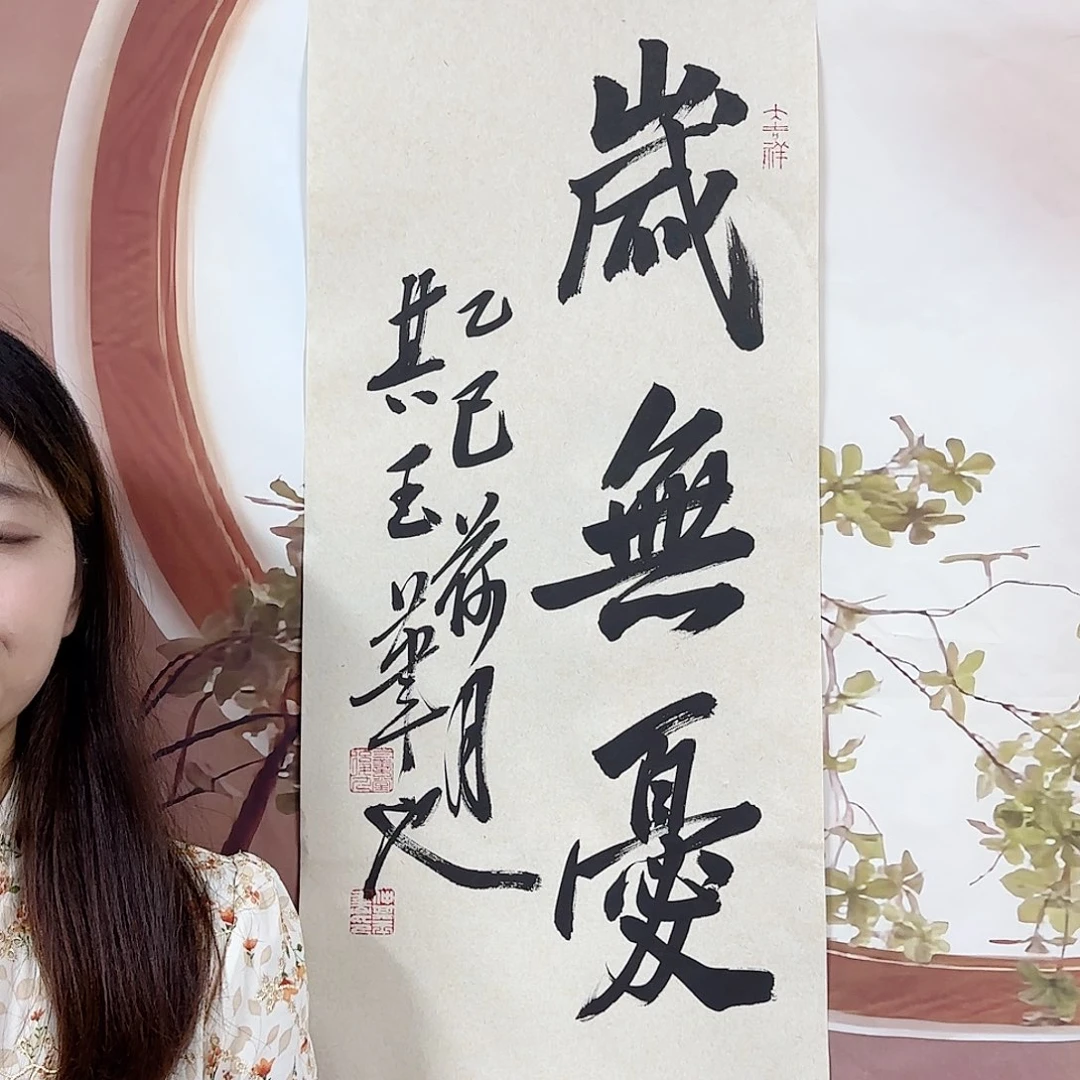 大吉祥
歲無憂
乙巳荷月
其玉